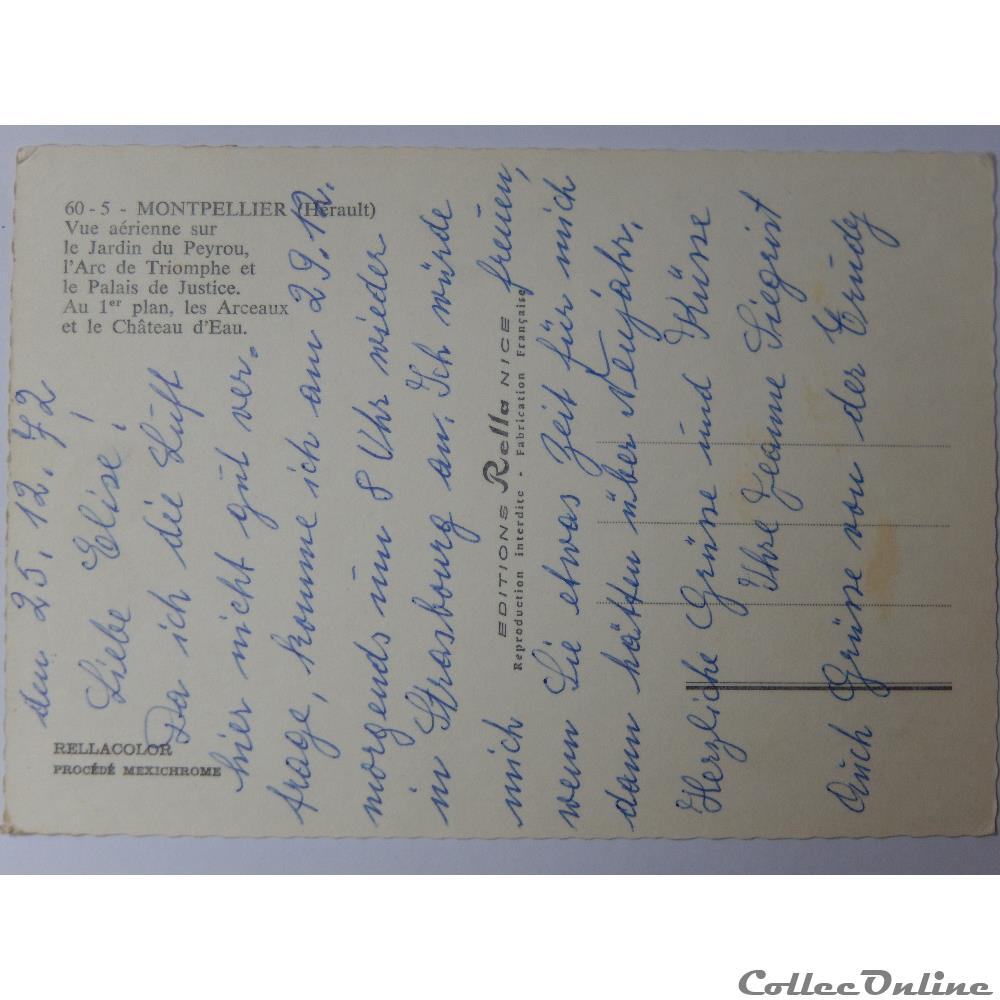 60-5 - MONTPELLIER (Hérault)
Vue aérienne sur
le Jardin du Peyrou,
l'Arc de Triomphe et
le Palais de Justice.
Au 1er plan, les Arceaux
et le Château d'Eau.
RELLACOLOR
PROCÉDÉ MEXICHROME
EDITIONS Rella NICE
Reproduction interdite - Fabrication Française
den 25.12.72
Liebe Elise!
Da ich die Luft
hier nicht gut ver.
trage, komme ich am 29.12.
morgends um 8 Uhr wieder
in Strasbourg an. Ich würde
mich freuen,
wenn Sie etwas Zeit für mich
dann hätten über Neujahr.
Herzliche Grüse und Küsse
Ihre Jeanne Siegrist
Auch Grüse von der Trudy
CollecOnline